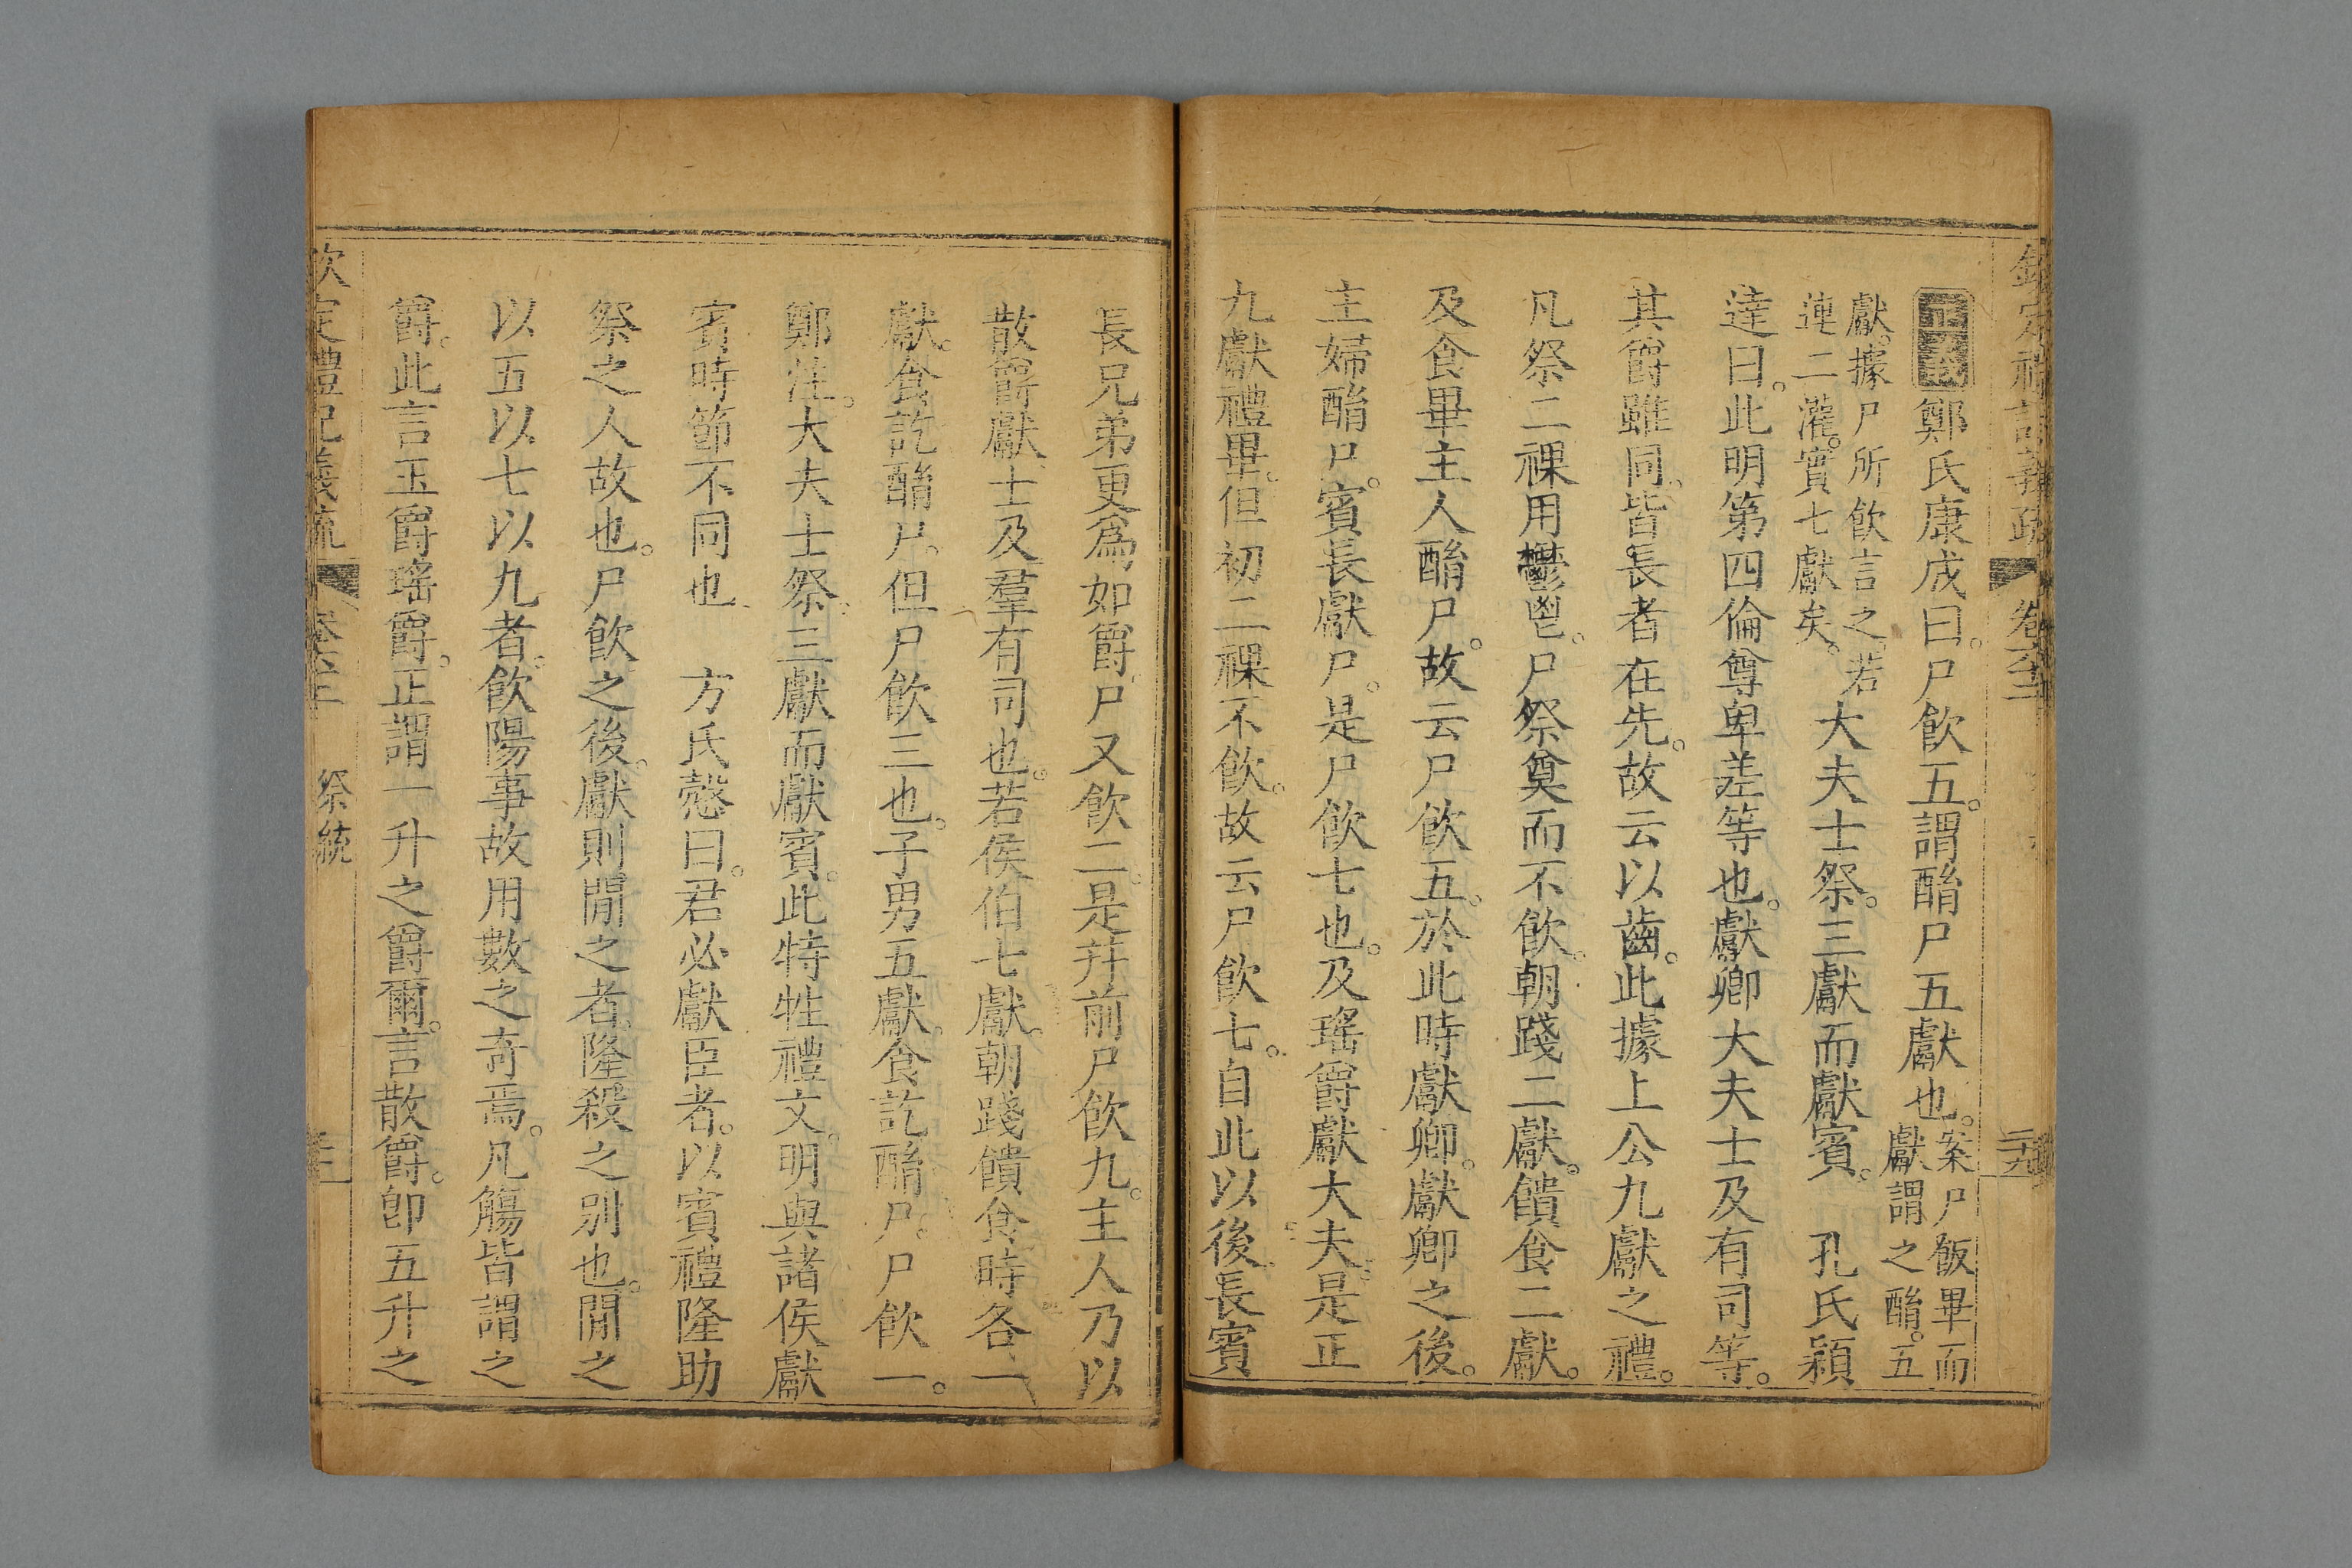 欽定禮記義疏 卷六十二 二十九
正義鄭氏康成曰。尸飲五。謂酳尸五獻也。案尸飯畢而
獻謂之酳。五
獻。據尸所飲言之。若
連二灌。實七獻矣。大夫士祭。三獻而獻賓。 孔氏穎
達曰。此明第四倫尊卑差等也。獻卿大夫士及有司等。
其爵雖同。皆長者在先。故云以齒。此據上公九獻之禮。
凡祭二祼用鬱鬯。尸祭奠而不飲。朝踐二獻。饋食二獻。
及食畢主人酳尸。故云尸飲五。於此時獻卿。獻卿之後。
主婦酳尸。賓長獻尸。是尸飲七也。及瑤爵獻大夫。是正
九獻禮畢。但初二祼不飲。故云尸飲七。自此以後。長賓
長兄弟更爲加爵。尸又飲二。是幷前尸飲九。主人乃以
散爵獻士及羣有司也。若侯伯七獻。朝踐饋食時各一
獻。食訖酳尸。但尸飲三也。子男五獻。食訖酳尸。尸飲一。
鄭注。大夫士祭。三獻而獻賓。此特牲禮文。明與諸侯獻
賓時節不同也 方氏慤曰。君必獻臣者。以賓禮隆助
祭之人故也。尸飲之後。獻則閒之者。隆殺之别也。閒之
以五以七以九者。飲陽事。故用數之奇焉。凡觴皆謂之
爵。此言玉爵瑤爵。正謂一升之爵爾。言散爵。卽五升之
欽定禮記義疏 卷六十二 祭統 三十